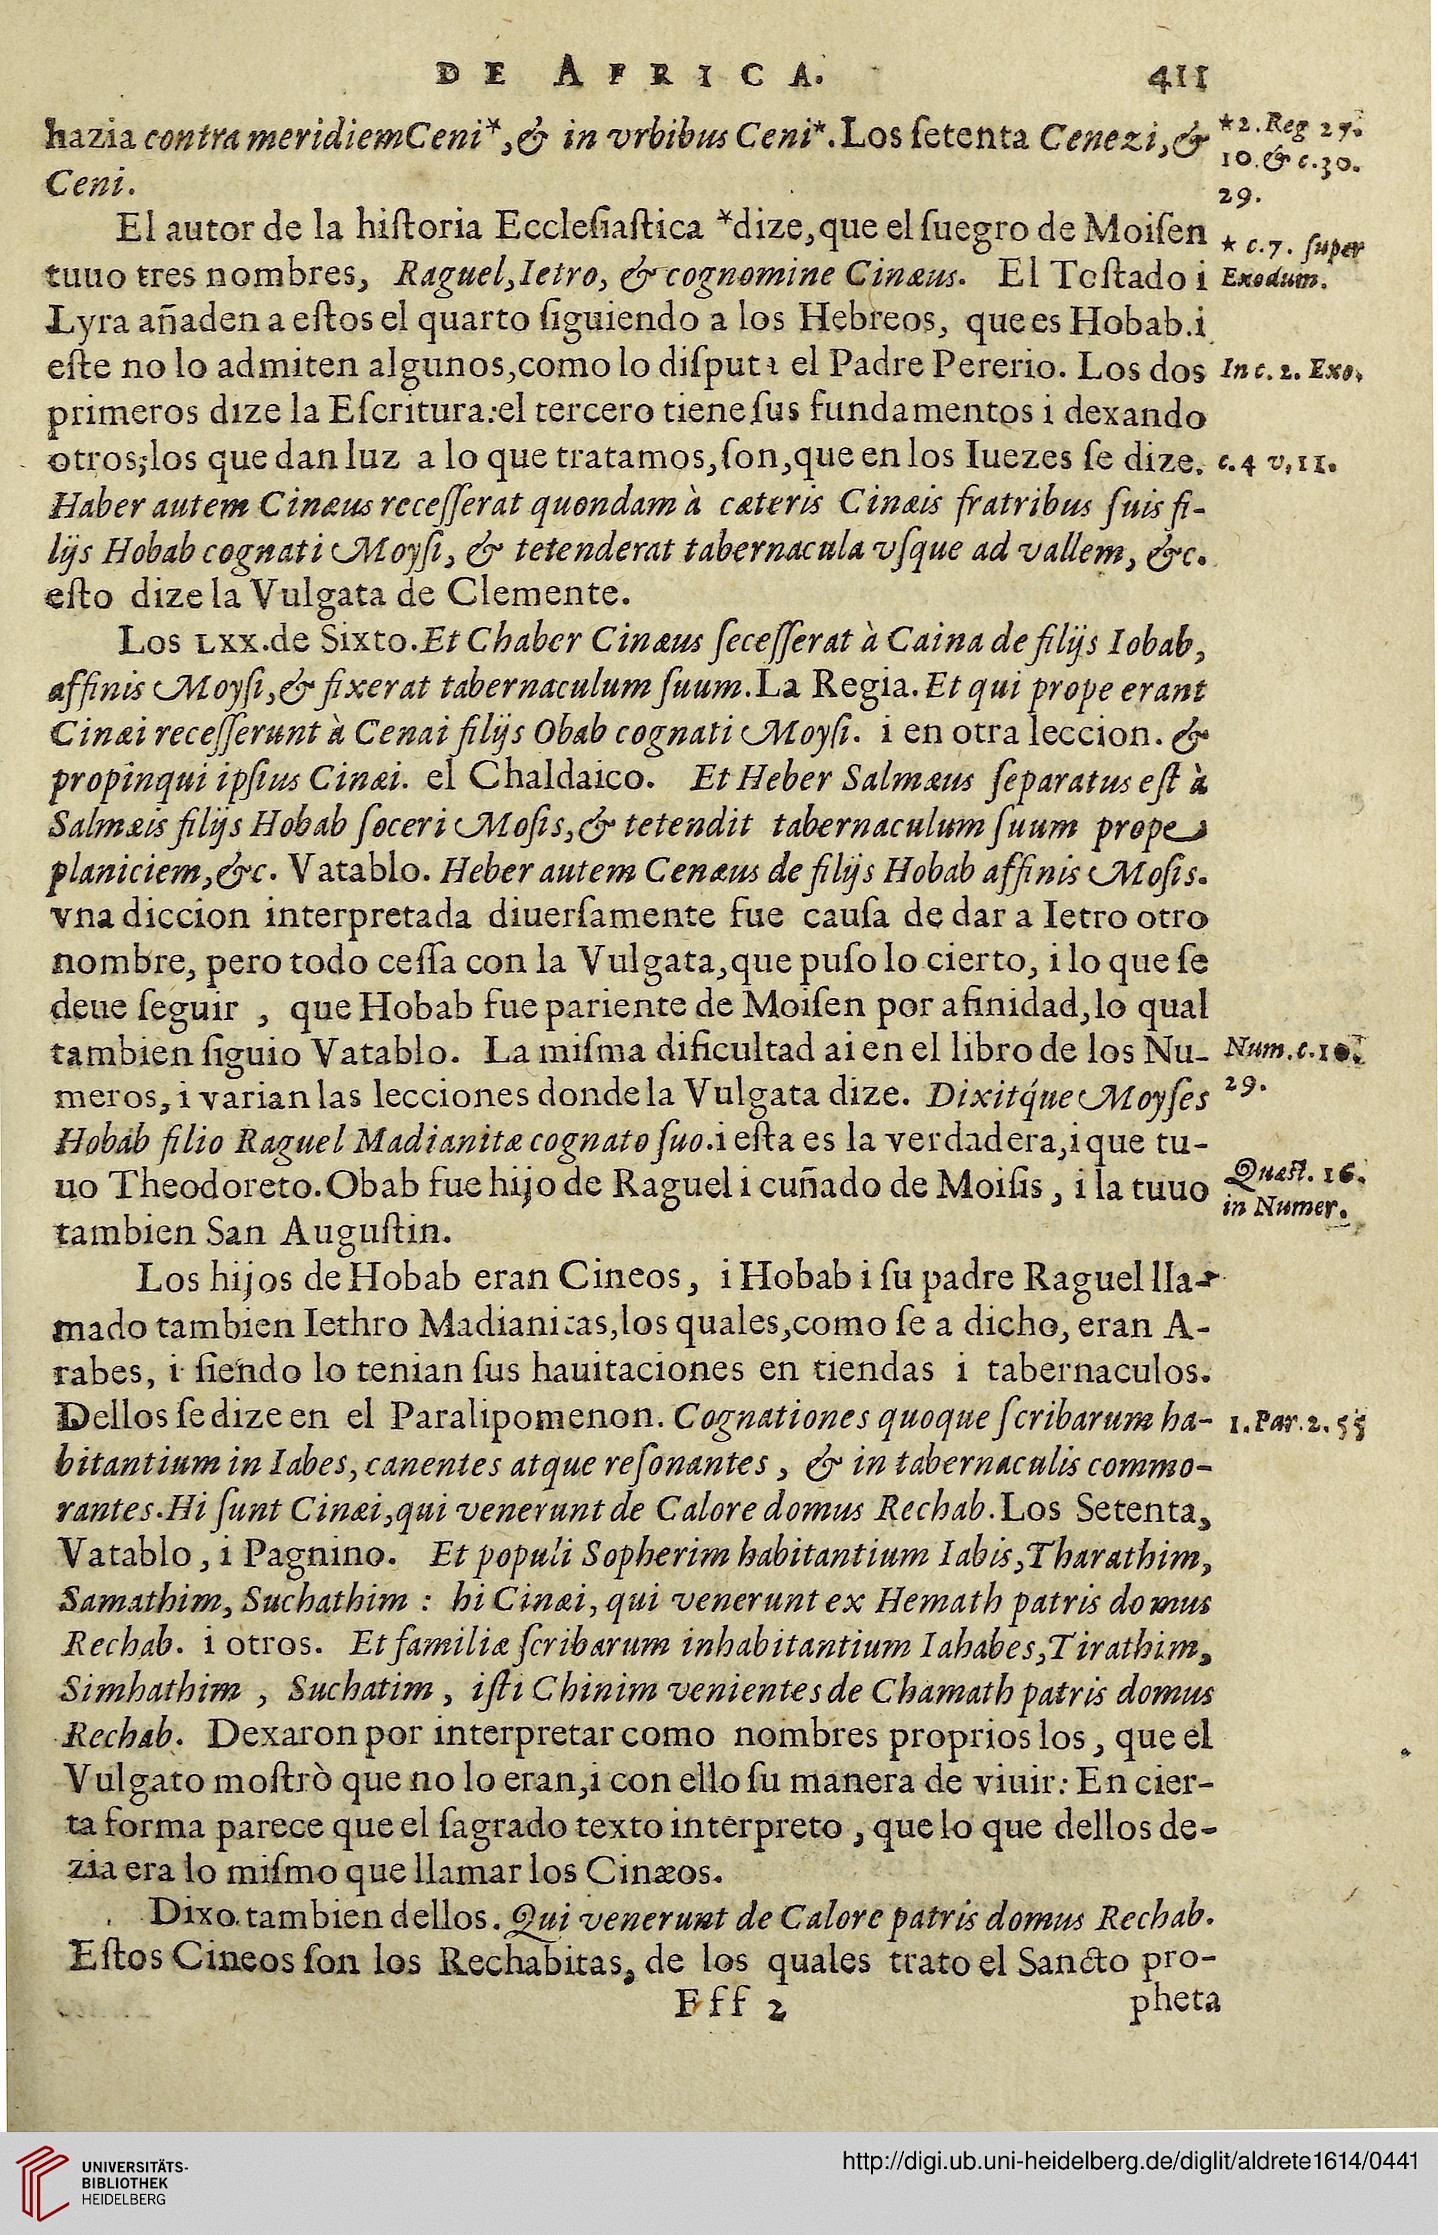 DE AFRICA. 411
hazia contra meridiem Ceni*, & in vrbibus Ceni*. Los ſetenta Cenezi, &
Ceni.
*2. Reg 27.
10. & c.30.
29.
El autor de la hiſtoria Eccleſiaſtica *dize, que el ſuegro de Moiſen
tuuo tres nombres, Raguel, Ietro, & cognomine Cinæus. El Toſtado i
* c.7. ſuper
Exodum.
Lyra añaden a eſtos el quarto ſiguiendo a los Hebreos, que es Hobab. i
eſte no lo admiten algunos, como lo diſputa el Padre Pererio. Los dos
In c. 2. Exo.
primeros dize la Eſcritura: el tercero tiene ſus fundamentos i dexando
otros; los que dan luz a lo que tratamos, ſon, que en los Iuezes ſe dize.
c.4 v.11.
Haber autem Cinæus receſſerat quondam à cæteris Cinæis fratribus ſuis fi-
lijs Hobab cognati Moyſi, & tetenderat tabernacula vſque ad vallem, &c.
eſto dize la Vulgata de Clemente.
Los LXX. de Sixto. Et Chaber Cinæus ſeceſſerat à Caina de filijs Iobab,
affinis Moyſi, & fixerat tabernaculum ſuum. La Regia. Et qui prope erant
Cinæi receſſerunt à Cenai filijs Obab cognati Moyſi. i en otra leccion. &
propinqui ipſius Cinæi. el Chaldaico. Et Heber Salmæus ſeparatus eſt à
Salmæis filijs Hobab ſoceri Moſis, & tetendit tabernaculum ſuum prope
planiciem, &c. Vatablo. Heber autem Cenæus de filijs Hobab affinis Moſis.
vna diccion interpretada diuerſamente fue cauſa de dar a Ietro otro
nombre, pero todo ceſſa con la Vulgata, que puſo lo cierto, i lo que ſe
deue ſeguir , que Hobab fue pariente de Moiſen por afinidad, lo qual
tambien ſiguio Vatablo. La miſma dificultad ai en el libro de los Nu-
Num. c.10.
29.
meros, i varian las lecciones donde la Vulgata dize. Dixitq́ue Moyſes
Hobab filio Raguel Madianitæ cognato ſuo. i eſta es la verdadera, i que tu-
uo Theodoreto. Obab fue hijo de Raguel i cuñado de Moiſis, i la tuuo
Quæſt. 16.
in Numer.
tambien San Auguſtin.
Los hijos de Hobab eran Cineos, i Hobab i ſu padre Raguel lla-
mado tambien Iethro Madianitas, los quales, como ſe a dicho, eran A-
rabes, i ſiendo lo tenian ſus hauitaciones en tiendas i tabernaculos.
Dellos ſe dize en el Paralipomenon. Cognationes quoque ſcribarum ha-
1. Par. 2. 55
bitantium in Iabes, canentes atque reſonantes , & in tabernaculis commo-
rantes. Hi ſunt Cinæi, qui venerunt de Calore domus Rechab. Los Setenta,
Vatablo, i Pagnino. Et populi Sopherim habitantium Iabis, Tharathim,
Samathim, Suchathim : hi Cinæi, qui venerunt ex Hemath patris domus
Rechab. i otros. Et familiæ ſcribarum inhabitantium Iahabes, Tirathim,
Simhathim , Suchatim , iſti Chinim venientes de Chamath patris domus
Rechab. Dexaron por interpretar como nombres proprios los , que el
Vulgato moſtrò que no lo eran, i con ello ſu manera de viuir: En cier-
ta forma parece que el ſagrado texto interpreto , que lo que dellos de-
zia era lo miſmo que llamar los Cinæos.
Dixo tambien dellos. Qui venerunt de Calore patris domus Rechab.
Eſtos Cineos ſon los Rechabitas, de los quales trato el Sancto pro-
Fff 2 pheta
UNIVERSITÄTS-
BIBLIOTHEK
HEIDELBERG
http://digi.ub.uni-heidelberg.de/diglit/aldrete1614/0441